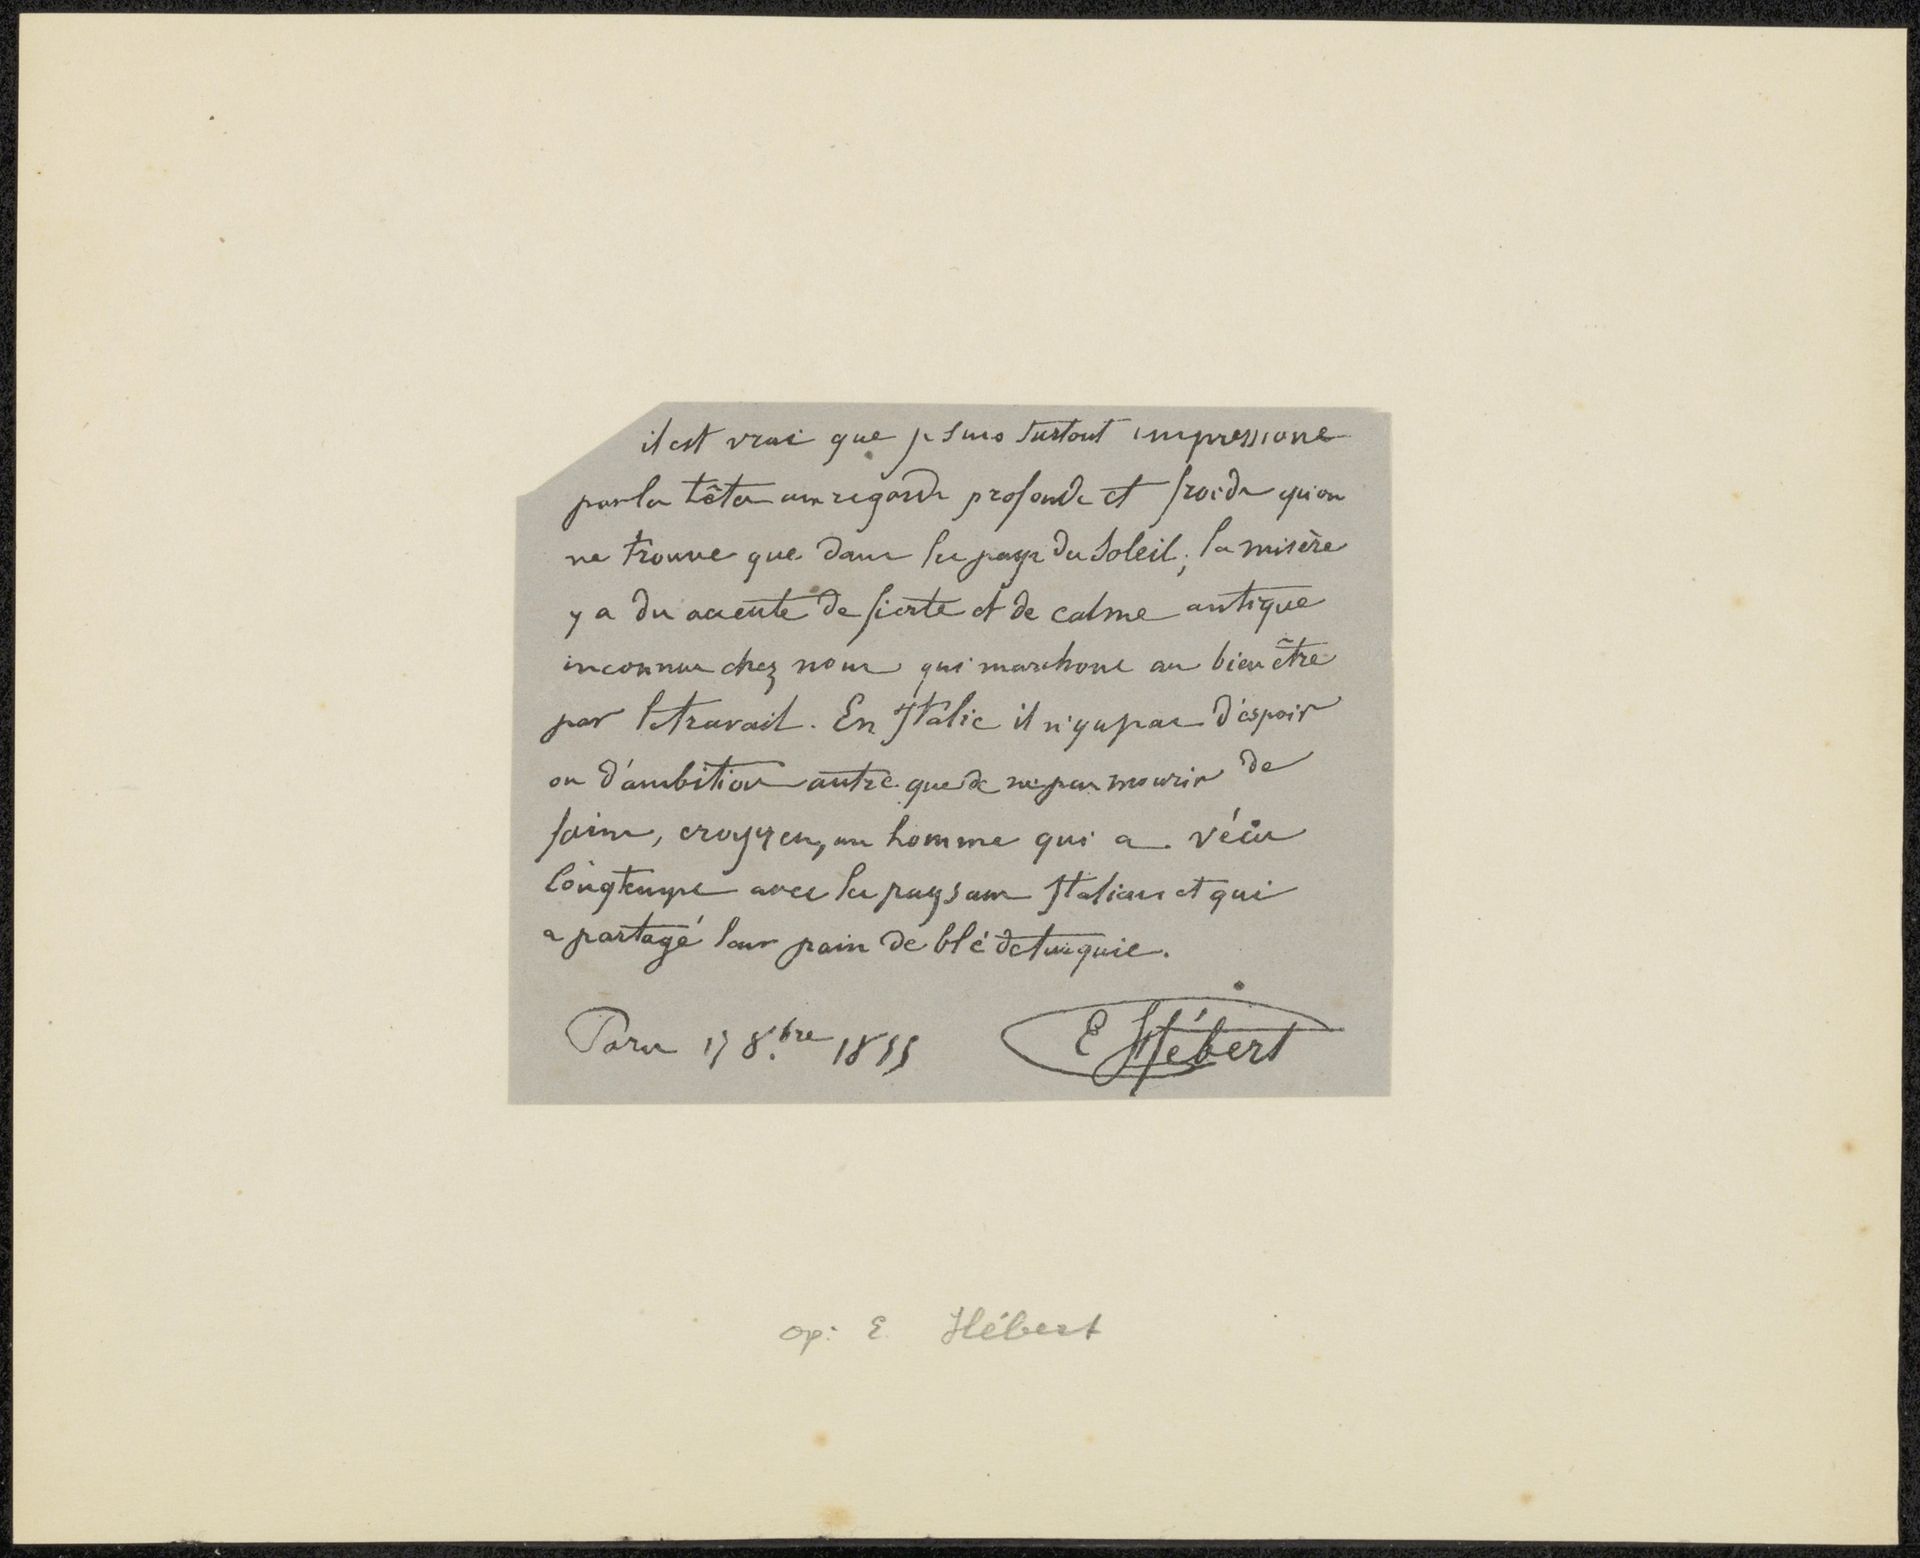 il est vrai que je suis surtout impressione
par les têtes au regards profonds et froids qu'on
ne trouve que dans les pays du soleil; la misère
y a du accents de fierte et de calme antique
inconnus chez nous qui marchons au bien être
par le travail. En Italie il n'y a pas d'espoir
ou d'ambition autre que de ne pas mourir de
faim, croyez en, un homme qui a vécu
longtemps avec les paysans Italiens et qui
a partagé leur pain de blé de turquie.
Paris 17 8.bre 1855 E Hébert
op: E. Hébert